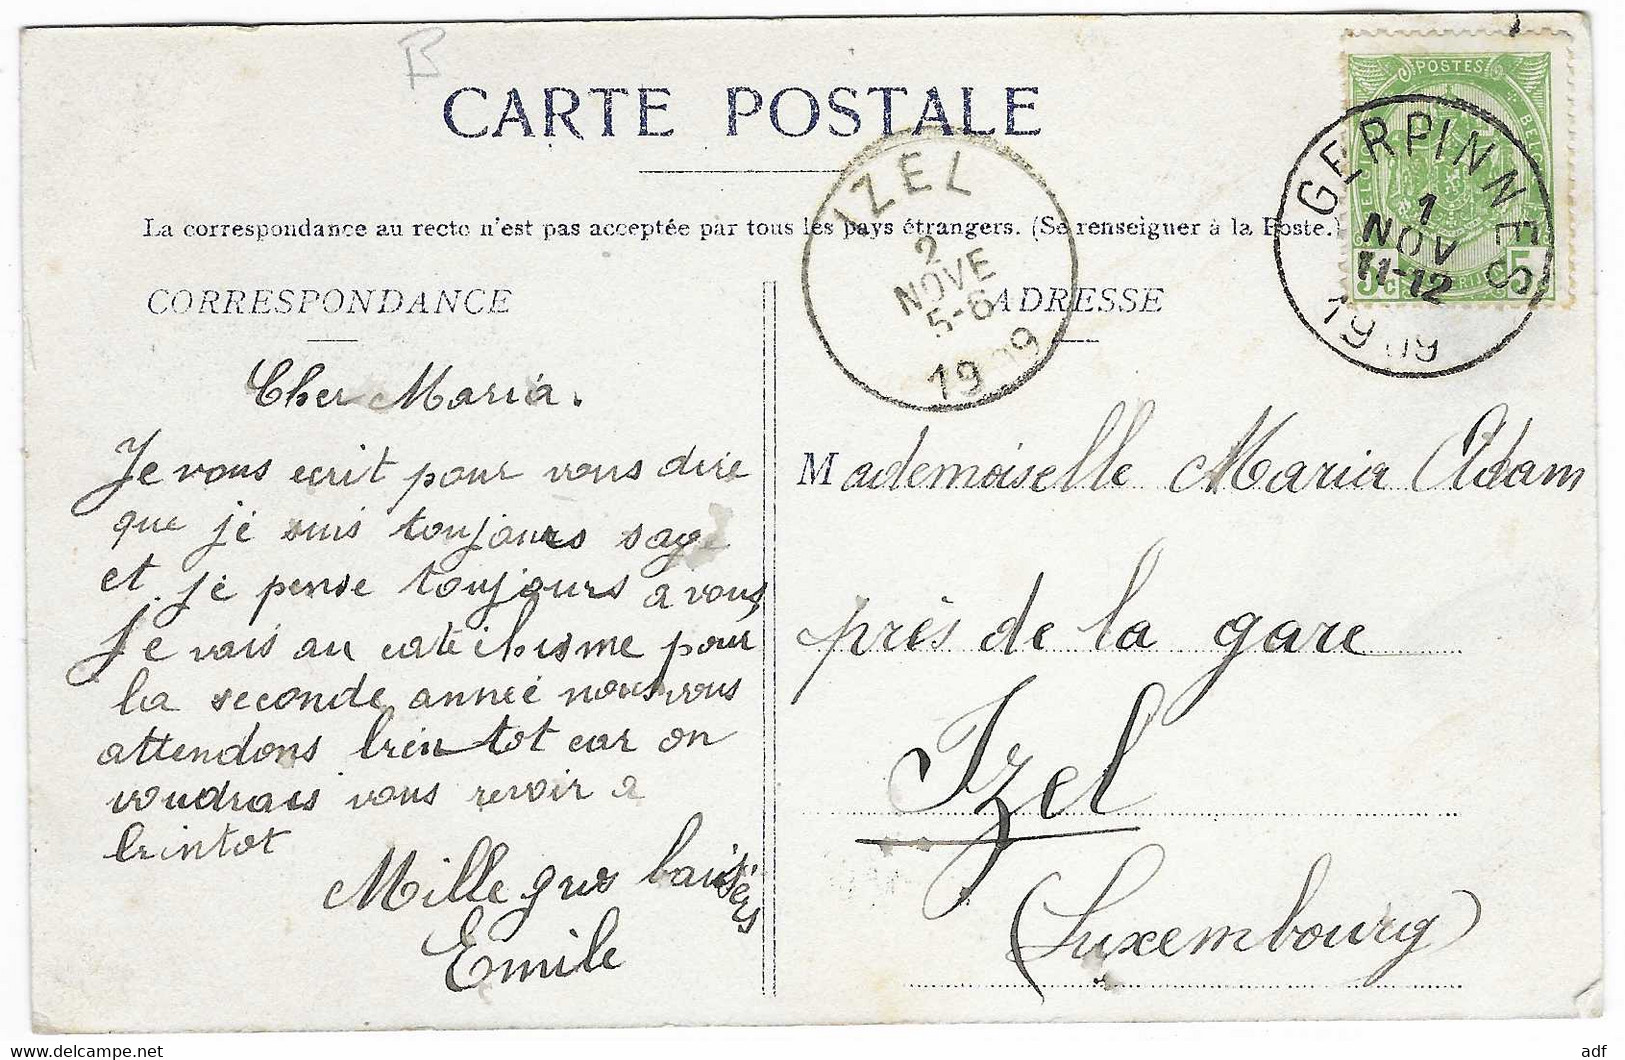 B
CARTE POSTALE
La correspondance au recto n'est pas acceptée par tous les pays étrangers. (Se renseigner à la Poste.)
CORRESPONDANCE
Cher Maria.
Je vous ecrit pour vous dire
que je suis toujours sage
et je pense toujours a vous
Je vais au catechisme pour
la seconde anneé nous vous
attendons bien tot car on
voudrais vous revoir a
brintot
Mille gros baisers
Emile
ADRESSE
Mademoiselle Maria Adam
près de la gare
Izel
(Luxembourg)
IZEL
2
NOVE
5-6
1909
POSTES
BELGIQUE
BELGIË
5c
5c
GERPINNES
1
NOV
11-12
1909
adf
delcampe.net